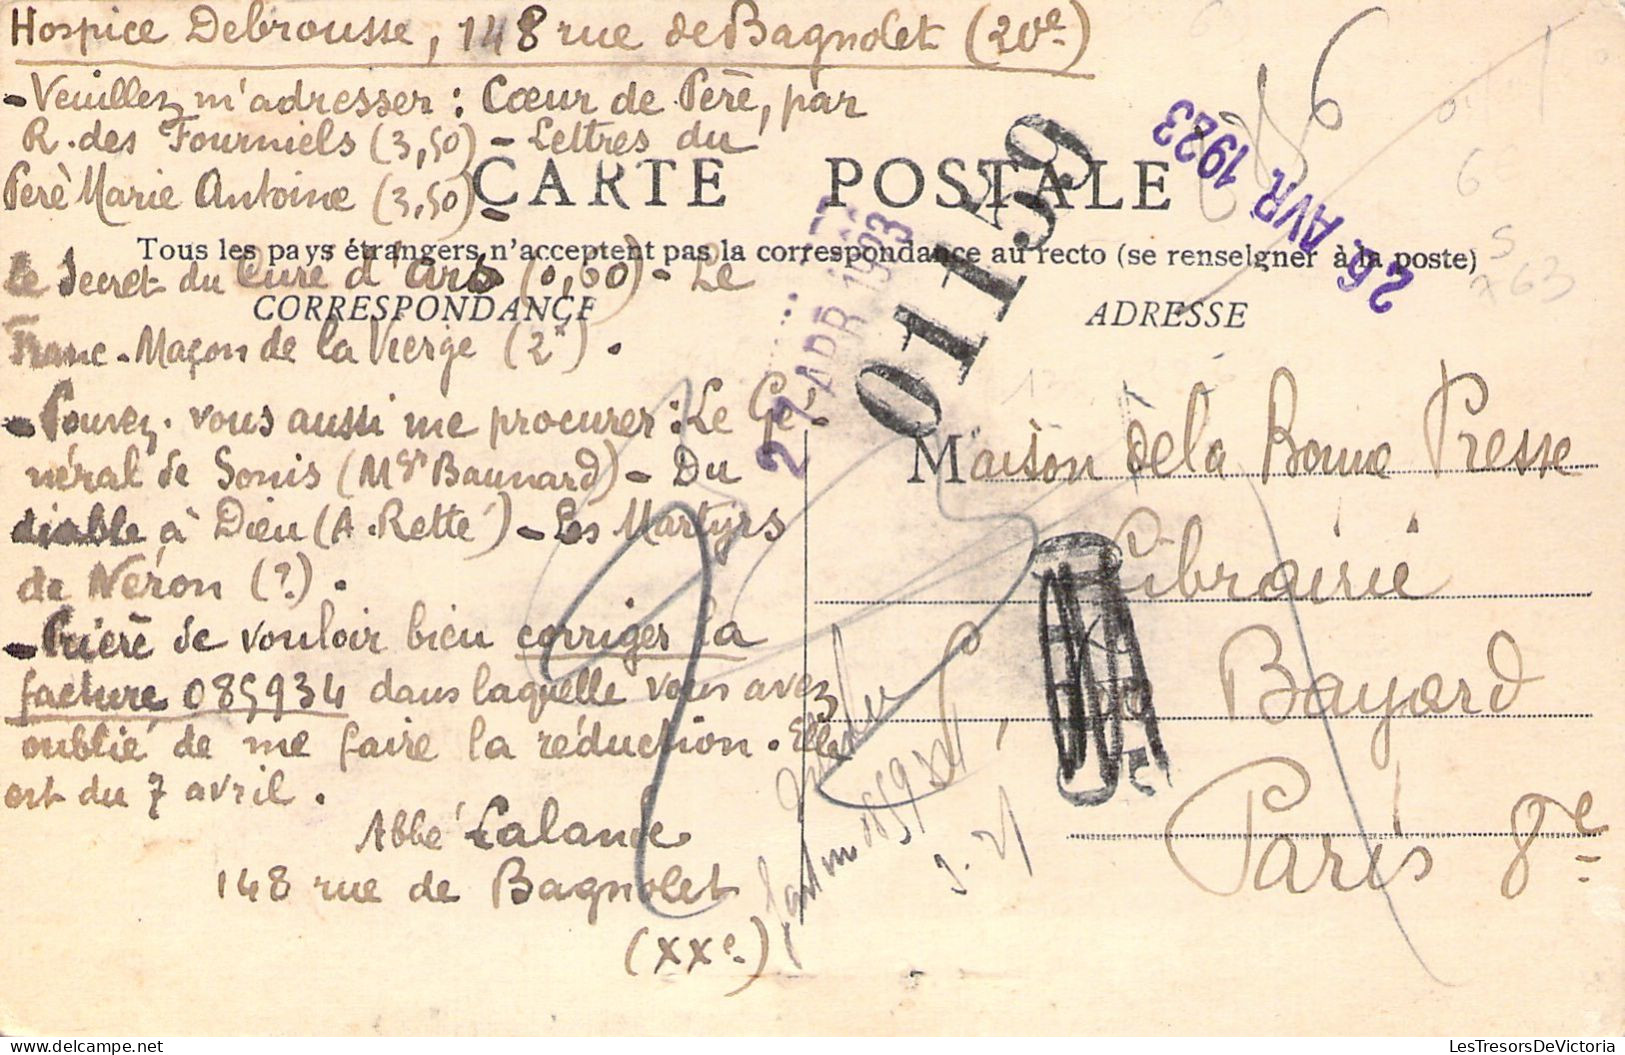 Hospice Debrousse, 148 rue de Bagnolet (20e)
- Veuillez m'adresser : Cœur de Père, par
R. des Fourniels (3,50) - Lettres du
Père Marie Antoine (3,50) -
CARTE POSTALE
Tous les pays étrangers n'acceptent pas la correspondance au recto (se renseigner à la poste)
le Secret du Curé d'Ars (0,60) - Le
CORRESPONDANCE
Franc-Maçon de la Vierge (2f) .
- Pouvez-vous aussi me procurer : Le Gé-
néral de Sonis (Mgr Baunard) - Du
diable à Dieu (A. Retté) - Les Martyrs
de Néron (?) .
- Prière de vouloir bien corriger la
facture 085934 dans laquelle vous avez
oublié de me faire la réduction. Elle
est du 7 avril .
Abbé Lalande
148 rue de Bagnolet
(XXe)
ADRESSE
Maison de la Bonne Presse
Librairie
5, Bayard
Paris 8e
01159
26. AVR 1923
27 APR
LesTresorsDeVictoria.com